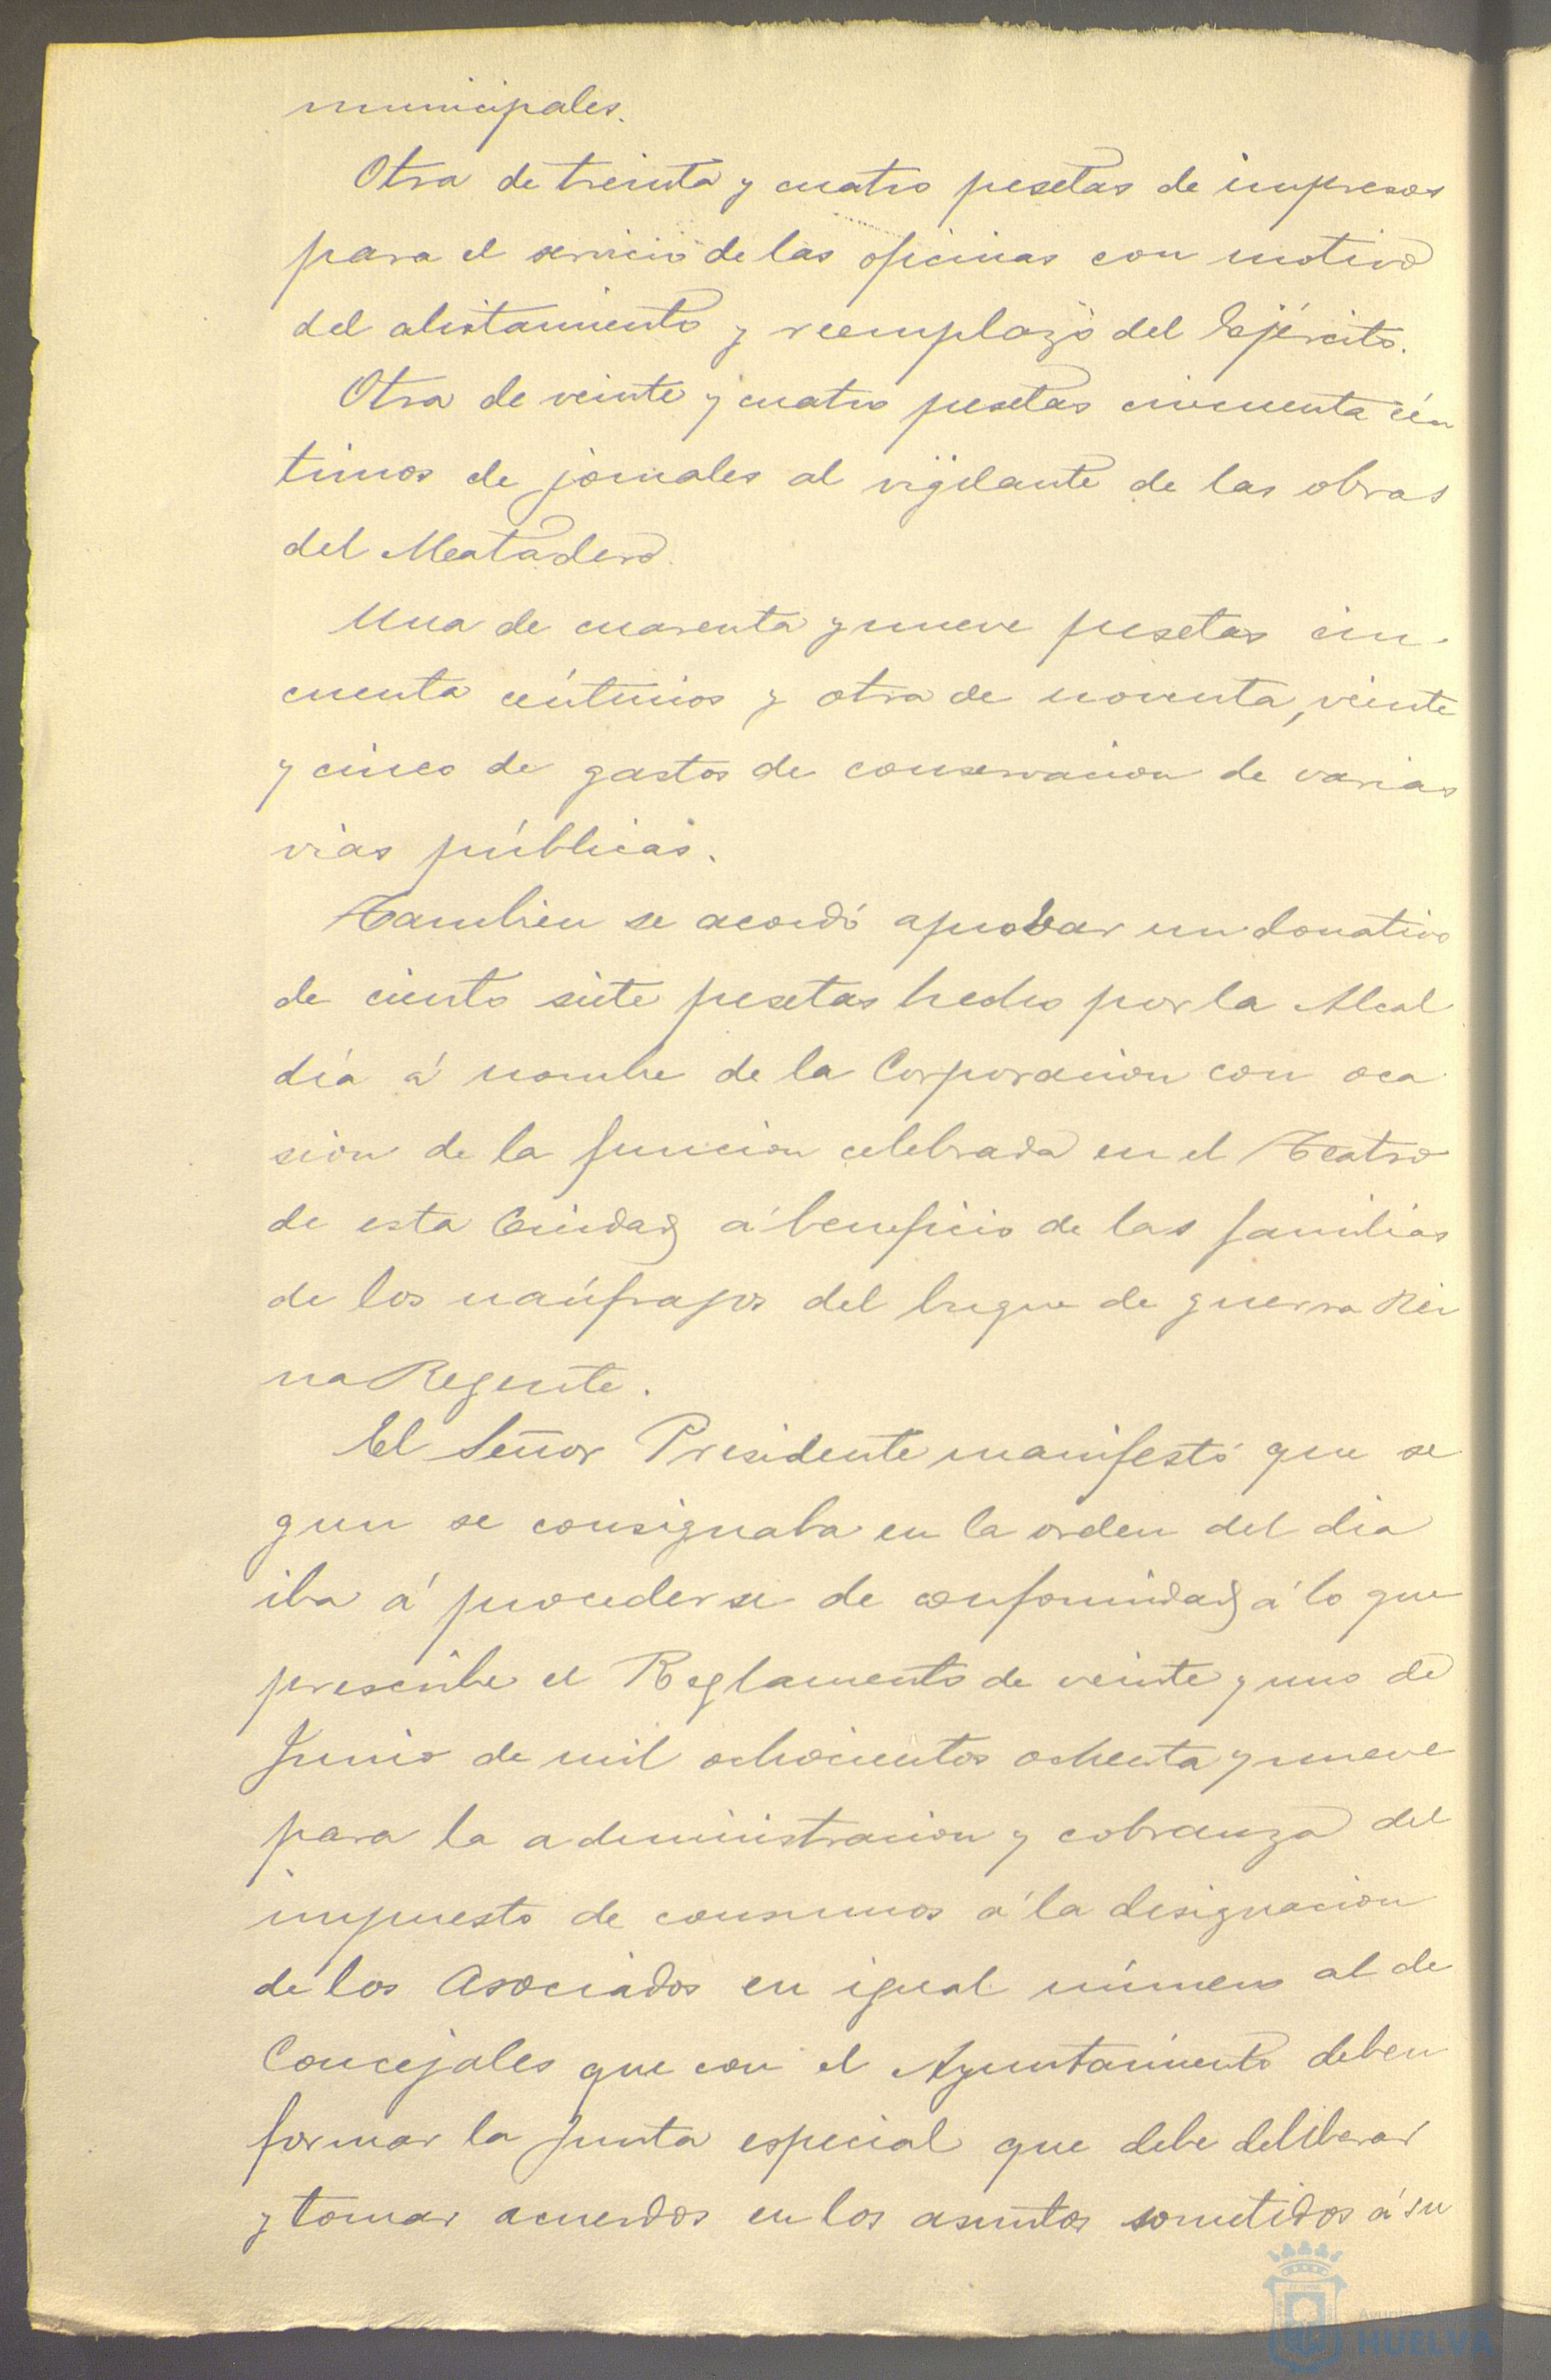 municipales.
Otra de treinta y cuatro pesetas de impresos
para el servicio de las oficinas con motivo
del alistamiento y reemplazo del Ejército.
Otra de veinte y cuatro pesetas cincuenta cén
timos de jornales al vigilante de las obras
del Matadero.
Una de cuarenta y nueve pesetas cin-
cuenta céntimos y otra de noventa, veinte
y cinco de gastos de conservacion de varias
vias públicas.
Tambien se acordó aprobar un donativo
de ciento siete pesetas hecho por la Alcal
día á nombre de la Corporacion con oca
sion de la funcion celebrada en el Teatro
de esta Ciudad á beneficio de las familias
de los naúfragos del buque de guerra Rei
na Regente.
El Señor Presidente manifestó que se
gun se consignaba en la orden del dia
iba á procederse de conformidad á lo que
prescribe el Reglamento de veinte y uno de
Junio de mil ochocientos ochenta y nueve
para la administracion y cobranza del
impuesto de consumos á la designacion
de los Asociados en igual número al de
Concejales que con el Ayuntamiento deben
formar la Junta especial que debe deliberar
y tomar acuerdos en los asuntos sometidos á su
HUELVA